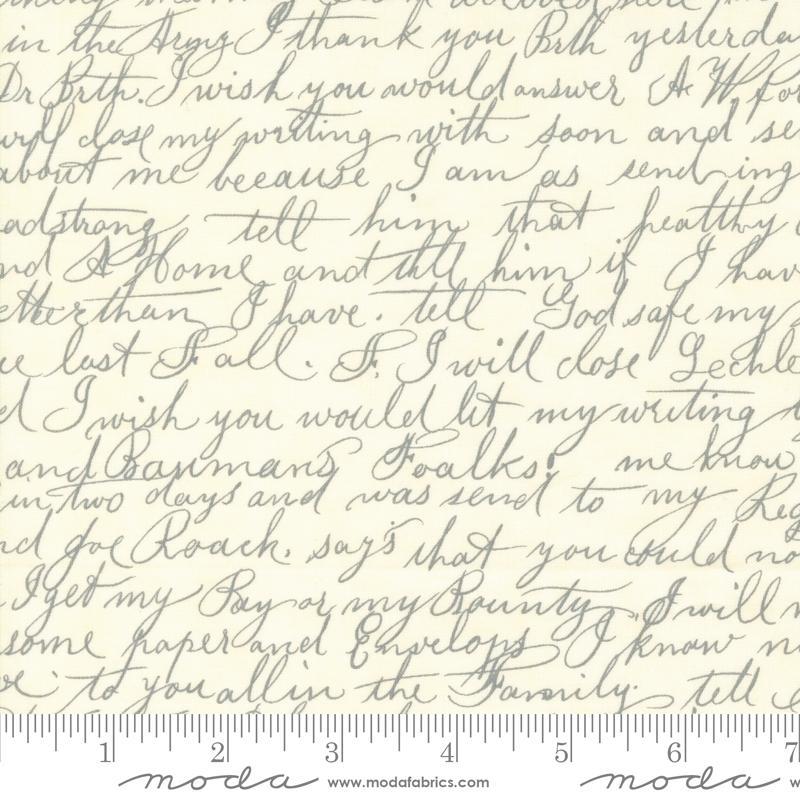 in the Army I thank you Brth yesterda
Dr Brth. I wish you would answer A W. for
will close my writing with soon and se
about me because I am as send ing
adstrong tell him that healthy
nd A Home and till him if I hav
etter than I have. tell God safe my
ue last Fall. F. I will close Lechle
d I wish you would let my writing
and Baumans Foalks! me know
in two days and was send to my Reg
nd Joe Roach. say's that you could no
I get my Pay or my Bounty I will
some paper and Envelops I know n
to you all in the Family. tell
1 2 3 4 5 6 7
moda www.modafabrics.com moda w